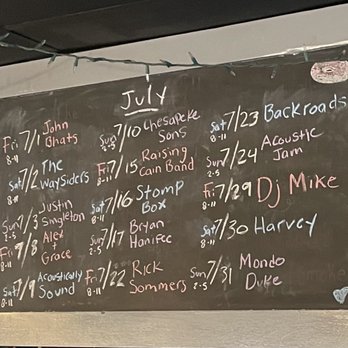 July
Fri 7/1 John
8-11 Ghats
Sat 7/2 The
8-11 WaySiders
Sun 7/3 Justin
2-5 Singleton
Fri 7/8 Alex
8-11 + Grace
Sat 7/9 Acoustically
8-11 Sound
Sun 7/10 Chesapeke
2-5 Sons
Fri 7/15 Raising
8-11 Cain Band
Sat 7/16 Stomp
8-11 Box
Sun 7/17 Bryan
2-5 Hanifee
Fri 7/22 Rick
8-11 Sommers
Sat 7/23 Backroads
8-11
Sun 7/24 Acoustic
2-5 Jam
Fri 7/29 Dj Mike
8-11
Sat 7/30 Harvey
8-11
Sun 7/31 Mondo
2-5 Duke